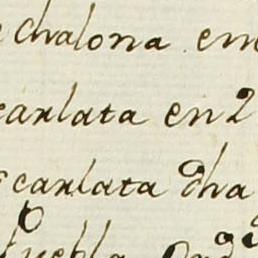 chalona em
carlata en 2
scarlata dha
Puebla